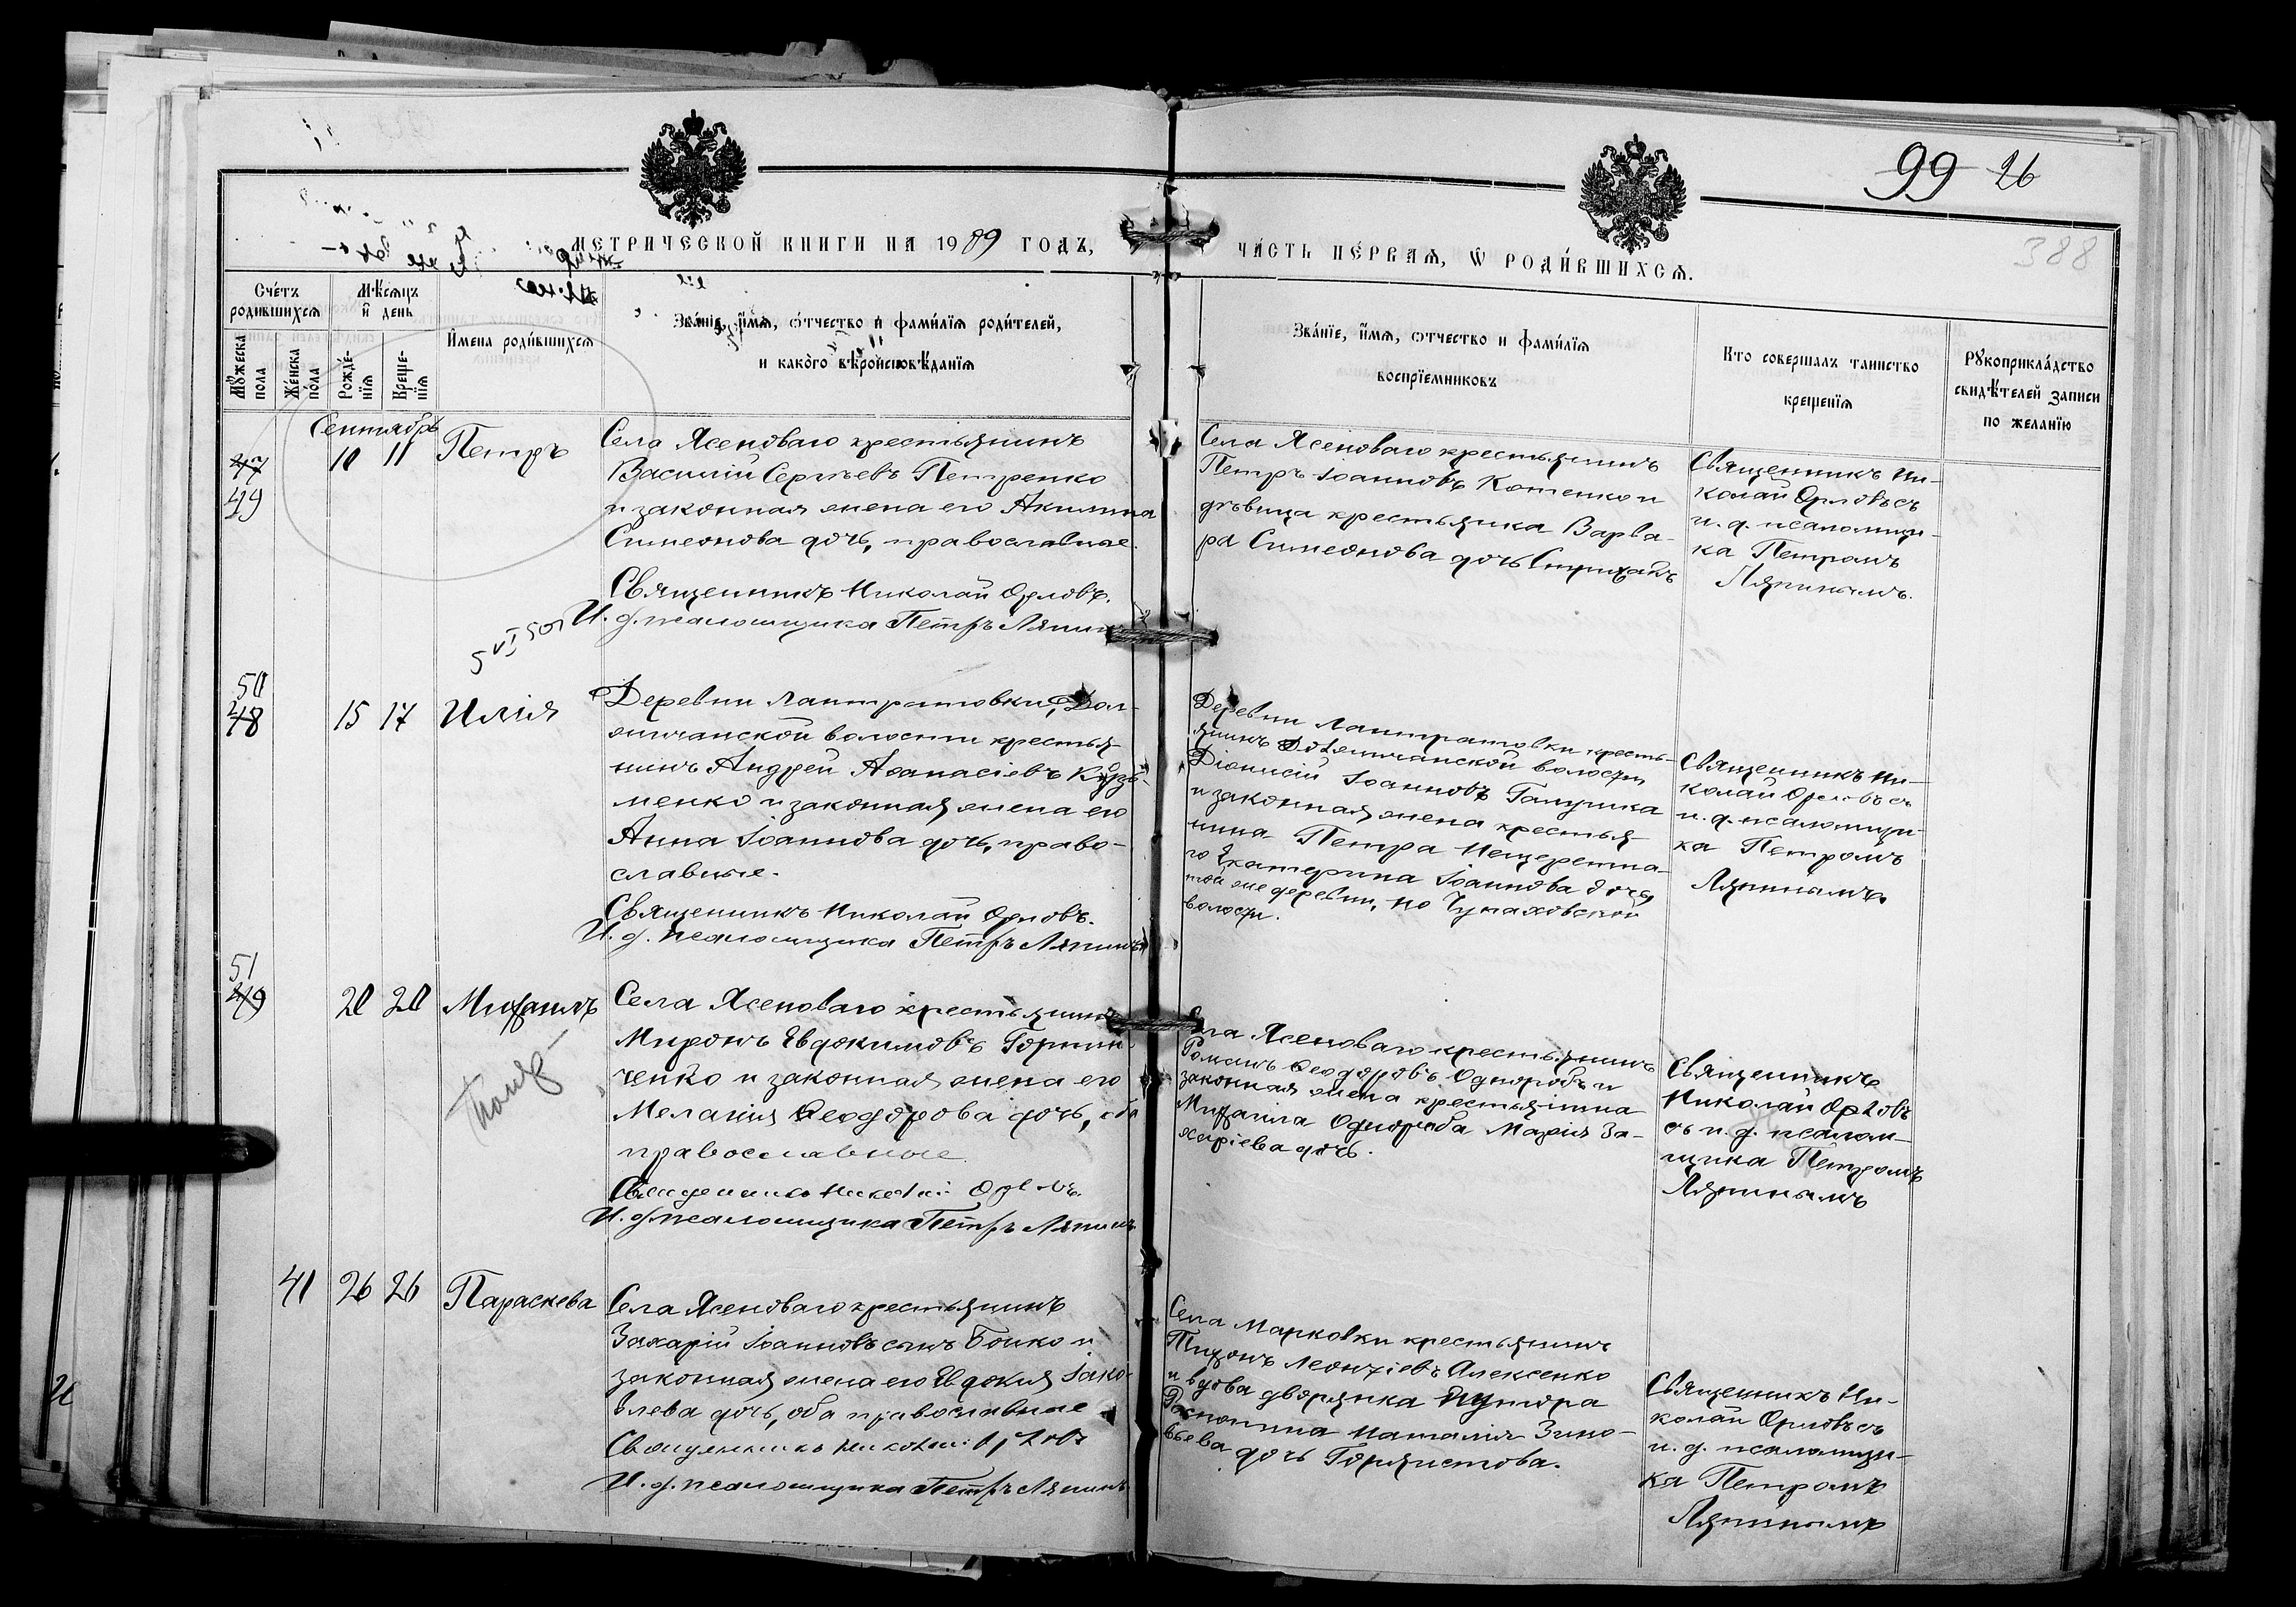 99 26
388
МЕТРИЧЕСКОЙ КНИГИ НА 1909 ГОДЪ,
ЧА́СТЬ ПЕ́РВАѦ, Ѡ҆ РОДИ́ВШИХСѦ.
Сче́тъ родившихсѧ
Мѣ́сѧцъ и҆ день
Мꙋ́жеска пола
Же́нска по́ла
Рожде́-нїѧ
Креще-нїѧ
И҆мена роди́вшихсѧ
Зва́нїе, и҆́мѧ, ѻ҆́тчество и҆ фами́лїѧ роди́телей,
и како́го вѣ́роисповѣ́данїѧ
Зва́нїе, и҆́мѧ, ѻ҆тчество и фами́лїѧ
воспрїемниковъ
Кто совершалъ таинство
крещенїѧ
Рꙋкоприкла́дство
свидѣ́телей записи
по желанїю
Сентябрь
47
49
10 11 Петръ
Села Ясеноваго крестьянинъ
Василій Сергѣевъ Петренко
и законная жена его Акилина
Симеонова дочь, православные.
Священникъ Николай Орловъ.
И. д. псаломщика Петръ Ляпинъ
Села Ясеноваго крестьянинъ
Петръ Іоанновъ Котенко и
дѣвица крестьянка Варва-
ра Симеонова дочь
Священникъ Ни-
колай Орловъ съ
и. д. псаломщи-
ка Петромъ
Ляпинымъ.
50
48
15 17 Илія
Деревни Лантратовки, Дол-
жичанской волости крестья-
нинъ Андрей Аѳанасіевъ Кузь-
менко и законная жена его
Анна Іоаннова дочь, право-
славные.
Священникъ Николай Орловъ.
И. д. псаломщика Петръ Ляпинъ
Деревни Лантратовки кресть-
янинъ Должичанской волости
Діонисій Іоанновъ Галушка
и законная жена крестья-
нина Петра
го Екатерина Іоаннова дочь
той же деревни, но Чупаховской
волости.
Священникъ Ни-
колай Орловъ съ
и. д. псаломщи-
ка Петромъ
Ляпинымъ
51
49
20 20 Михаилъ
Села Ясеноваго крестьянинъ
Миронъ Евдокимовъ
ченко и законная жена его
Меланія Ѳеодорова дочь, оба
православные
Священникъ Николай Орловъ.
И. д. псаломщика Петръ Ляпинъ
Села Ясеноваго крестьянинъ
Романъ Ѳеодоровъ Однороб и
законная жена крестьянина
Михаила Однороба Марія За-
харіева дочь.
Священникъ
Николай Орловъ
съ и. д. псалом-
щика Петромъ
Ляпинымъ
41 26 26 Параскева
Села Ясеноваго крестьянинъ
Захарій Іоанновъ сынъ Бойко и
законная жена его Евдокія Іако-
влева дочь, оба православные
Священникъ Николай Орловъ
И. д. псаломщика Петръ Ляпинъ
Села Марковки крестьянинъ
Тихонъ Леонтіевъ Алексенко
и вдова дворянка хутора
Наталія Зино-
вьева дочь
Священникъ Ни-
колай Орловъ съ
и. д. псаломщи-
ка Петромъ
Ляпинымъ